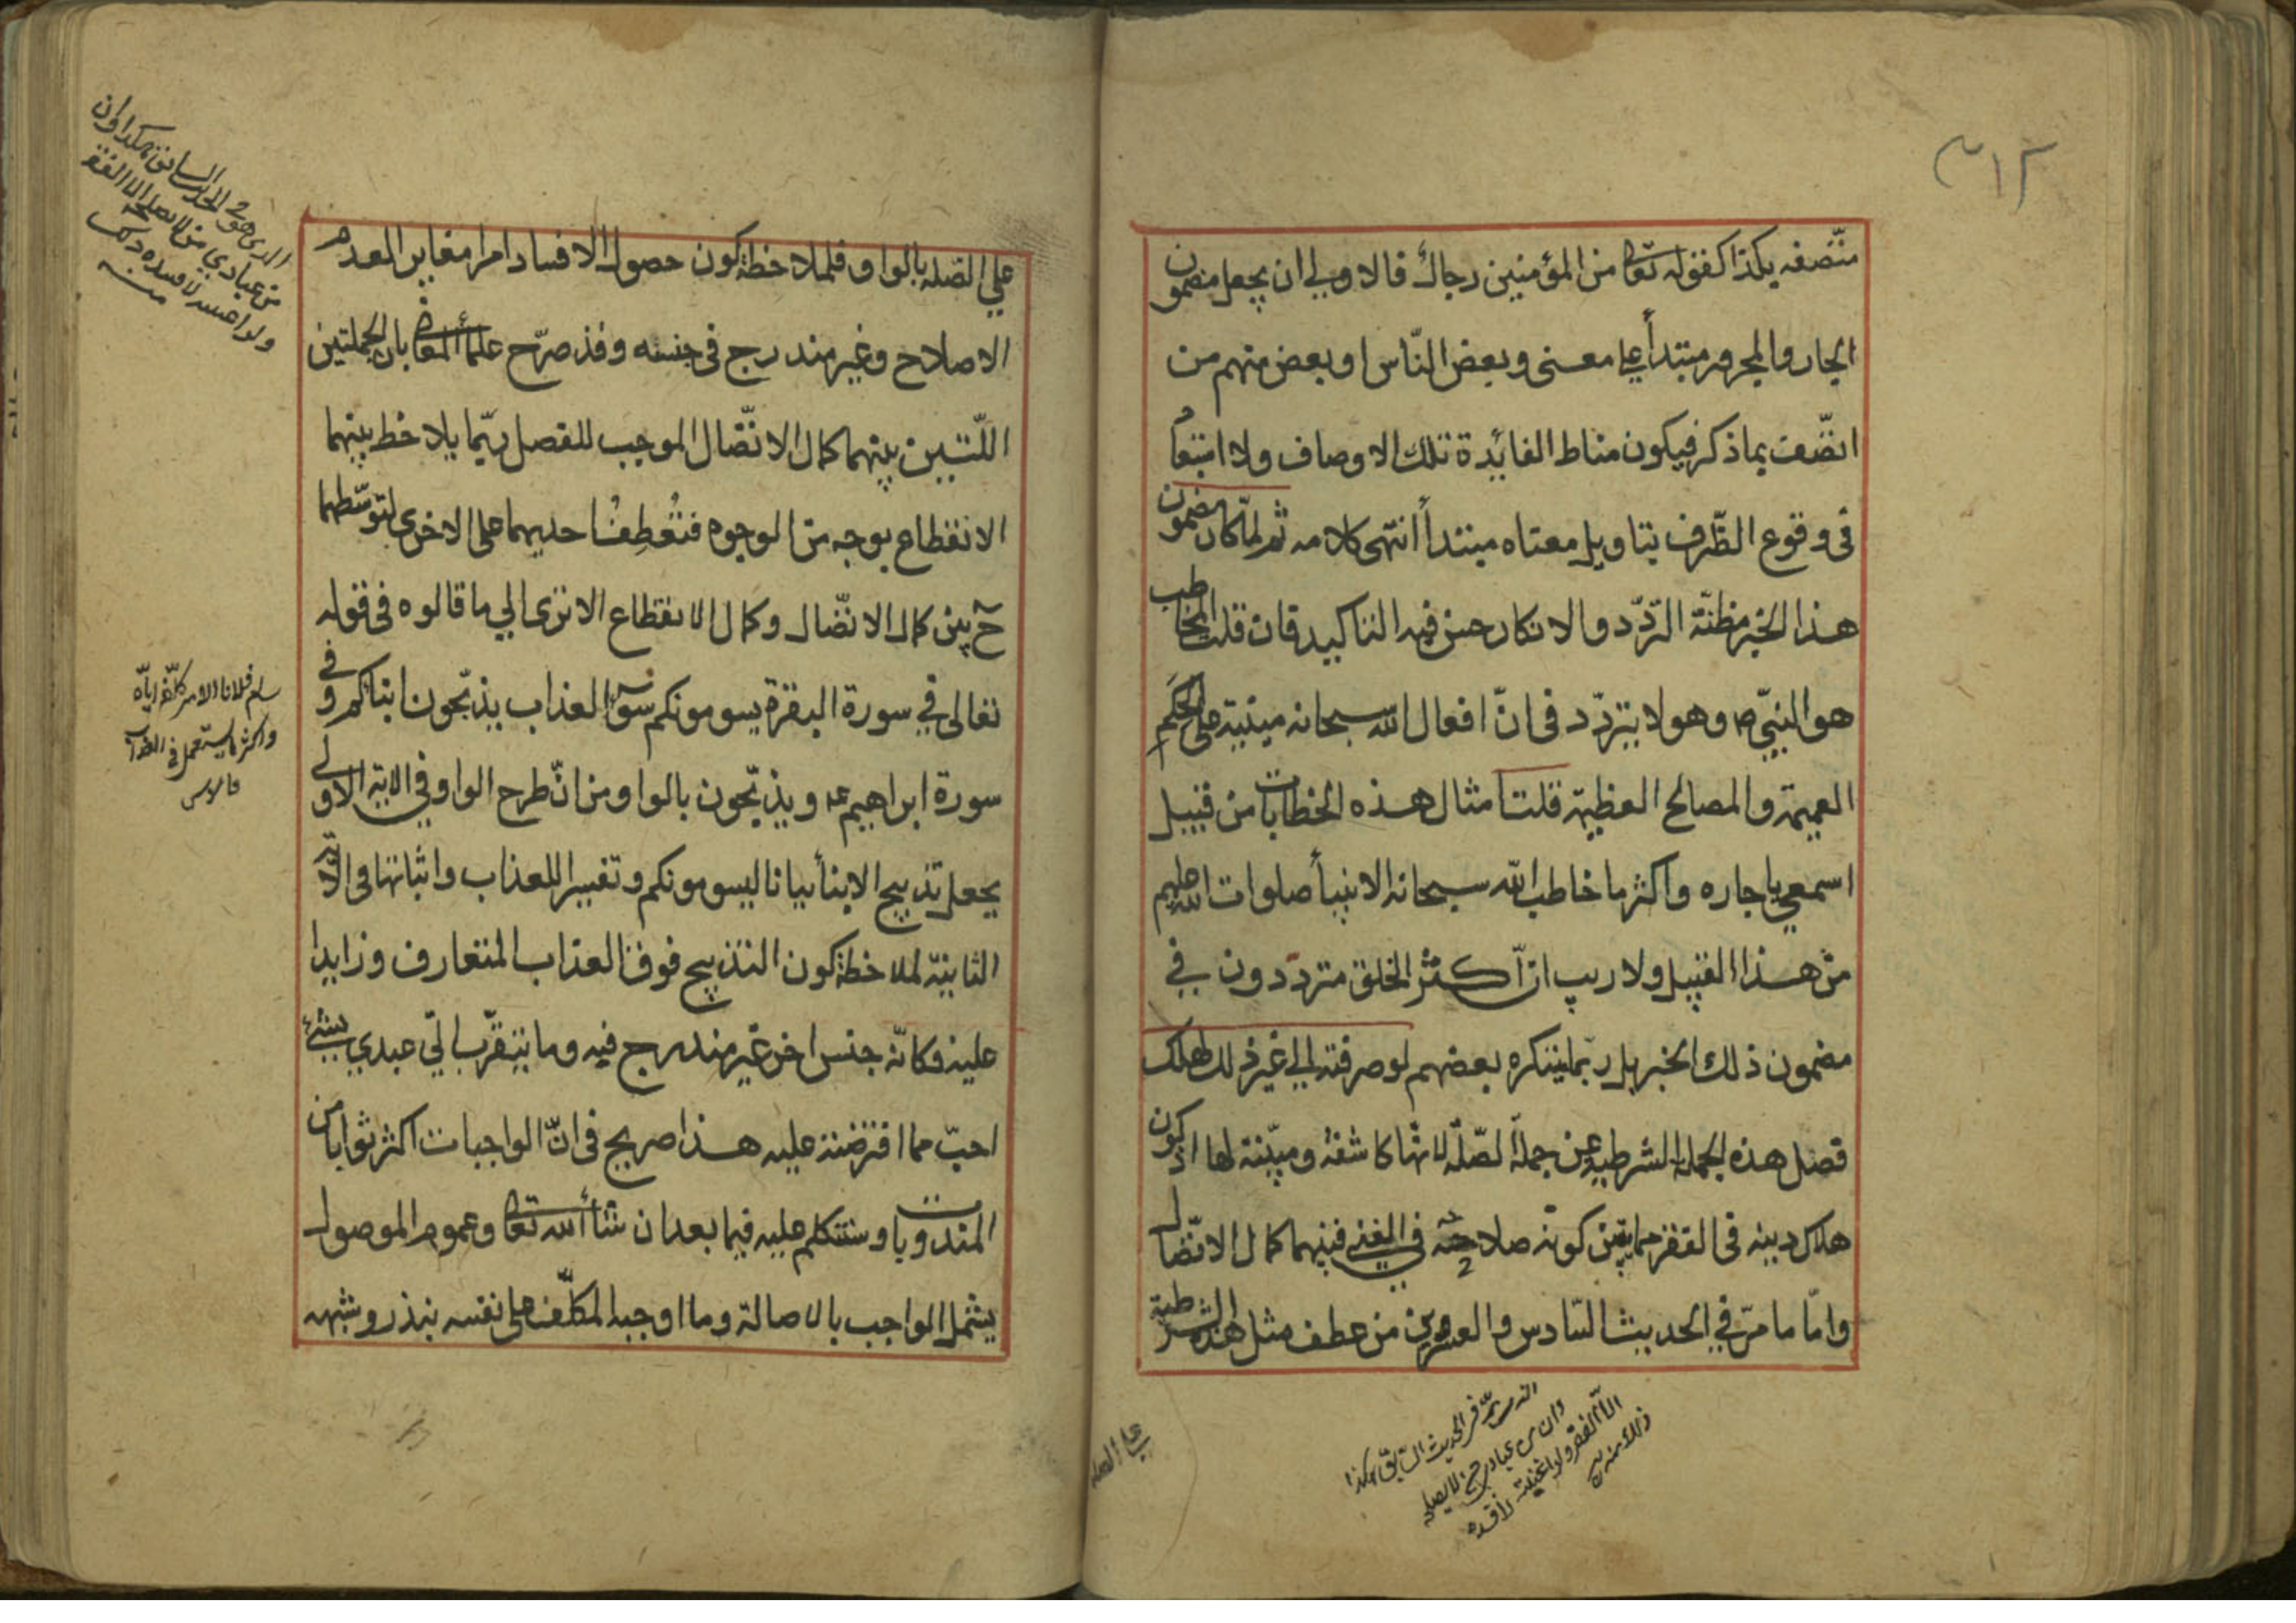 ٣١٢
متّصفه بكذا كقوله تعالى من المؤمنين رجال فالاولى ان يجعل مضمون
الجار والمجرور مبتدأ على معنى وبعض النّاس او بعض منهم من
اتّصف بما ذكر فيكون مناط الفائدة تلك الاوصاف ولا استبعاد
فى وقوع الظّرف بتاويل معناه مبتدأ انتهى كلامه ثم لمّا كان مضمون
هذا الخبر مظنّة التّردّد والانكار حسن فيه التاكيد فان قلت المخاطب
هو النبيّ ص وهو لا يتردّد فى انّ افعال الله سبحانه مبنية على الحكم
العميمة والمصالح العظيمة قلت امثال هذه الخطابات من قبيل
اسمعي يا جاره واكثر ما خاطب الله سبحانه الانبيأ صلوات الله عليهم
من هذا القبيل ولا ريب انّ اكثر الخلق متردّدون في
مضمون ذلك الخبر بل ربّما ينكره بعضهم لو صرفته الى غير ذلك لهلك
فصل هذه الجملة الشرطية عن جملة الصّلة لانّها كاشفة ومبيّنة لها اذ كون
هلاك دينه فى الفقر مما يبيّن كونه صلاحه في الغنى فبينهما كمال الاتّصال
وامّا ما مرّ في الحديث السّادس والعشرين من عطف مثل هذه الشرطية
الذى مرّ فى الحديث السّابق هكذا
وان من عبادي من لا يصلحه
الاّ الفقر ولو اغنيته لافسده
ذلك منه
على الصله
على الصّله بالواو فلملاحظة كون حصول الافساد امرا مغاير العدم
الاصلاح وغير مندرج فى جنسه وقد صرّح علمأ المعاني بان الجملتين
اللّتين بينهما كمال الاتّصال الموجب للفصل ربّما يلاحظ بينهما
الانقطاع بوجه من الوجوه فتُعطف احديهما على الاخرى لتوسّطهما
ح بين كمال الاتّصال وكمال الانقطاع الا ترى الي ما قالوه فى قوله
تعالى في سورة البقرة يسومونكم سوٓء العذاب يذبّحون ابنائكم وفى
سورة ابراهيم عه ويذبّحون بالواو من انّ طرح الواو في الاية الاولى
يجعل تذبيح الابنأ بيانا ليسومونكم وتفسيرا للعذاب واثباتها فى الاية
الثانية لملاحظة كون التذبيح فوق العذاب المتعارف وزايدا
عليه فكانّه جنس اخر غير مندرج فيه وما يتقرّب الىّ عبدي بشئ
احبّ مما افترضته عليه هذا صريح فى انّ الواجبات اكثر ثوابا من
المندوبات وسنتكلم عليه فيما بعد ان شأ الله تعالى وعموم الموصول
يشمل الواجب بالاصالة وما اوجبه المكلّف على نفسه بنذر وشبهه
الذى هو فى الحديث السابق هكذا وان
من عبادي من لا يصلحه الا الفقر
ولو اغنيته لافسده ذلك
منه
سام فلانا الامر كلّفه ايّاه
واكثر ما يستعمل فى العذاب
قاموس